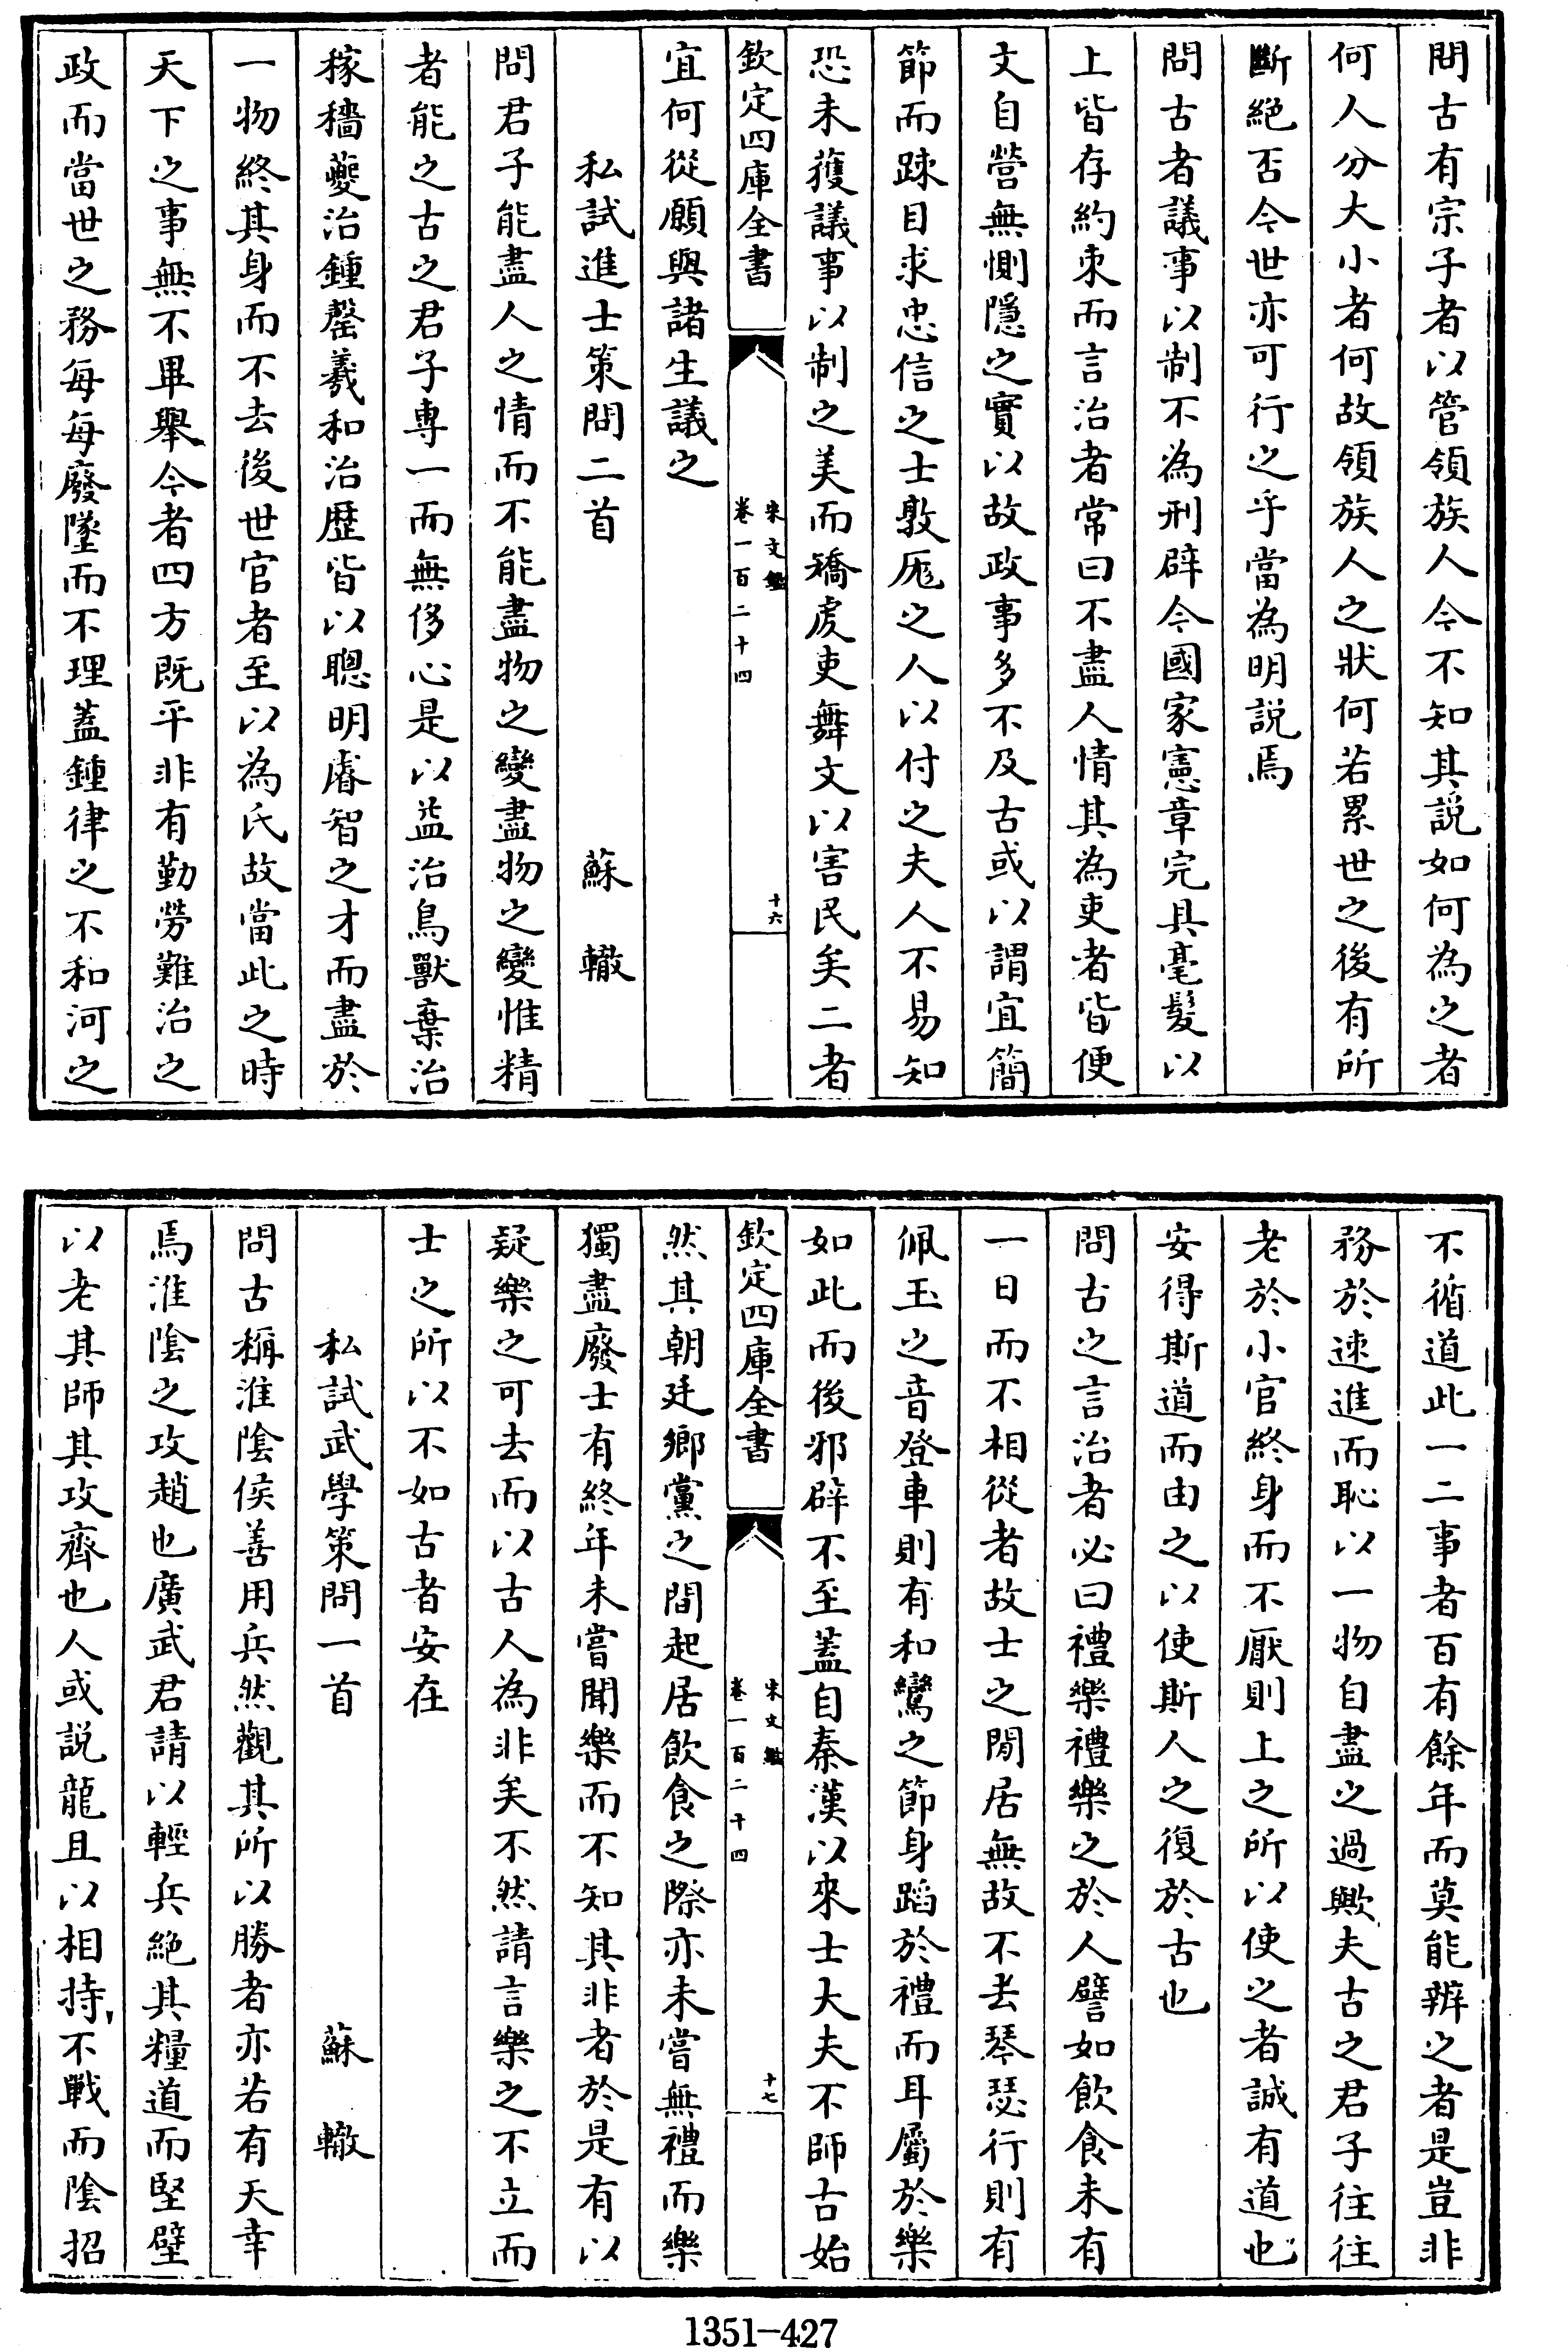 問古有宗子者以管領族人今不知其説如何為之者
何人分大小者何故領族人之狀何若累世之後有所
斷絕否今世亦可行之乎當為明説焉
問古者議事以制不為刑辟今國家憲章完具毫髮以
上皆存約束而言治者常曰不盡人情其為吏者皆便
文自營無惻隱之實以故政事多不及古或以謂宜簡
節而踈目求忠信之士敦厖之人以付之夫人不易知
恐未獲議事以制之美而矯虔吏舞文以害民矣二者
欽定四庫全書
宋文鑑
卷一百二十四
十六
宜何從願與諸生議之
私試進士策問二首 蘇轍
問君子能盡人之情而不能盡物之變盡物之變惟精
者能之古之君子専一而無侈心是以益治鳥獸棄治
稼穡夔治鍾罄羲和治歴皆以聰明睿智之才而盡於
一物終其身而不去後世官者至以為氏故當此之時
天下之事無不畢舉今者四方既平非有勤勞難治之
政而當世之務每每廢墜而不理蓋鍾律之不和河之
不循道此一二事者百有餘年而莫能辨之者是豈非
務於速進而恥以一物自盡之過歟夫古之君子往往
老於小官終身而不厭則上之所以使之者誠有道也
安得斯道而由之以使斯人之復於古也
問古之言治者必曰禮樂禮樂之於人譬如飲食未有
一日而不相從者故士之閒居無故不去琴瑟行則有
佩玉之音登車則有和鸞之節身蹈於禮而耳屬於樂
如此而後邪辟不至蓋自秦漢以來士大夫不師古始
欽定四庫全書
宋文鑑
卷一百二十四
十七
然其朝廷鄉黨之間起居飲食之際亦未嘗無禮而樂
獨盡廢士有終年未嘗聞樂而不知其非者於是有以
疑樂之可去而以古人為非矣不然請言樂之不立而
士之所以不如古者安在
私試武學策問一首 蘇轍
問古稱淮陰侯善用兵然觀其所以勝者亦若有天幸
焉淮陰之攻趙也廣武君請以輕兵絕其糧道而堅壁
以老其師其攻齊也人或説龍且以相持不戰而陰招
1351-427